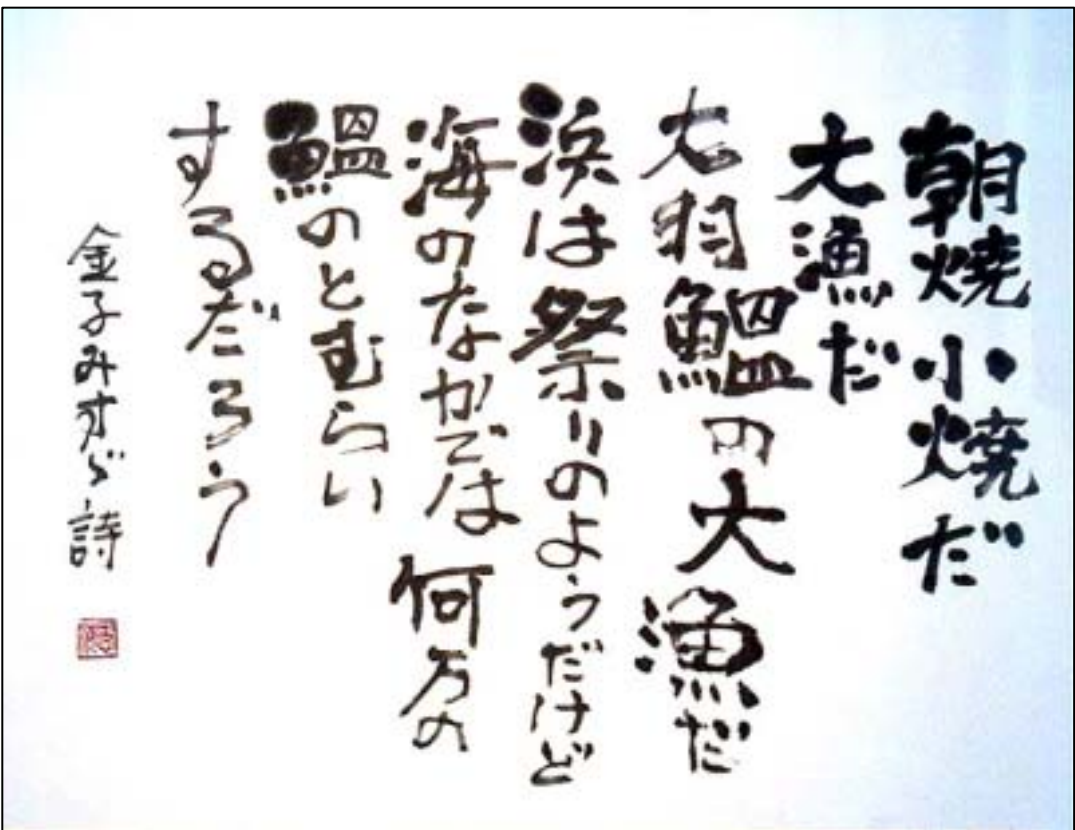 朝焼小焼だ
大漁だ
大羽鰮の大漁だ
浜は祭りのようだけど
海のなかでは何万の
鰮のとむらい
するだろう
金子みすゞ詩